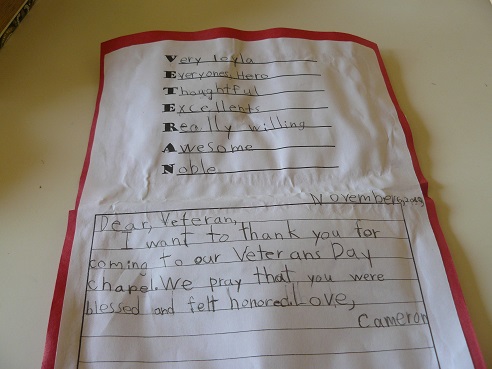 Very loyla
Everyones Hero
Thoughtful
Excellents
Really willing
Awesome
Noble
November
Dear, Veteran,
I want to thank you for
coming to our Veterans Day
chapel. We pray that you were
blessed and felt honored. Love,
Cameron